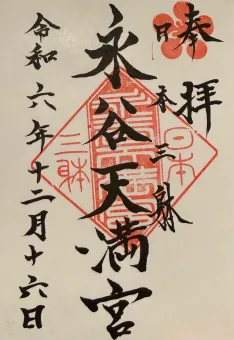 奉拝
日本三躰
永谷天満宮
令和六年十二月十六日
日本
三躰